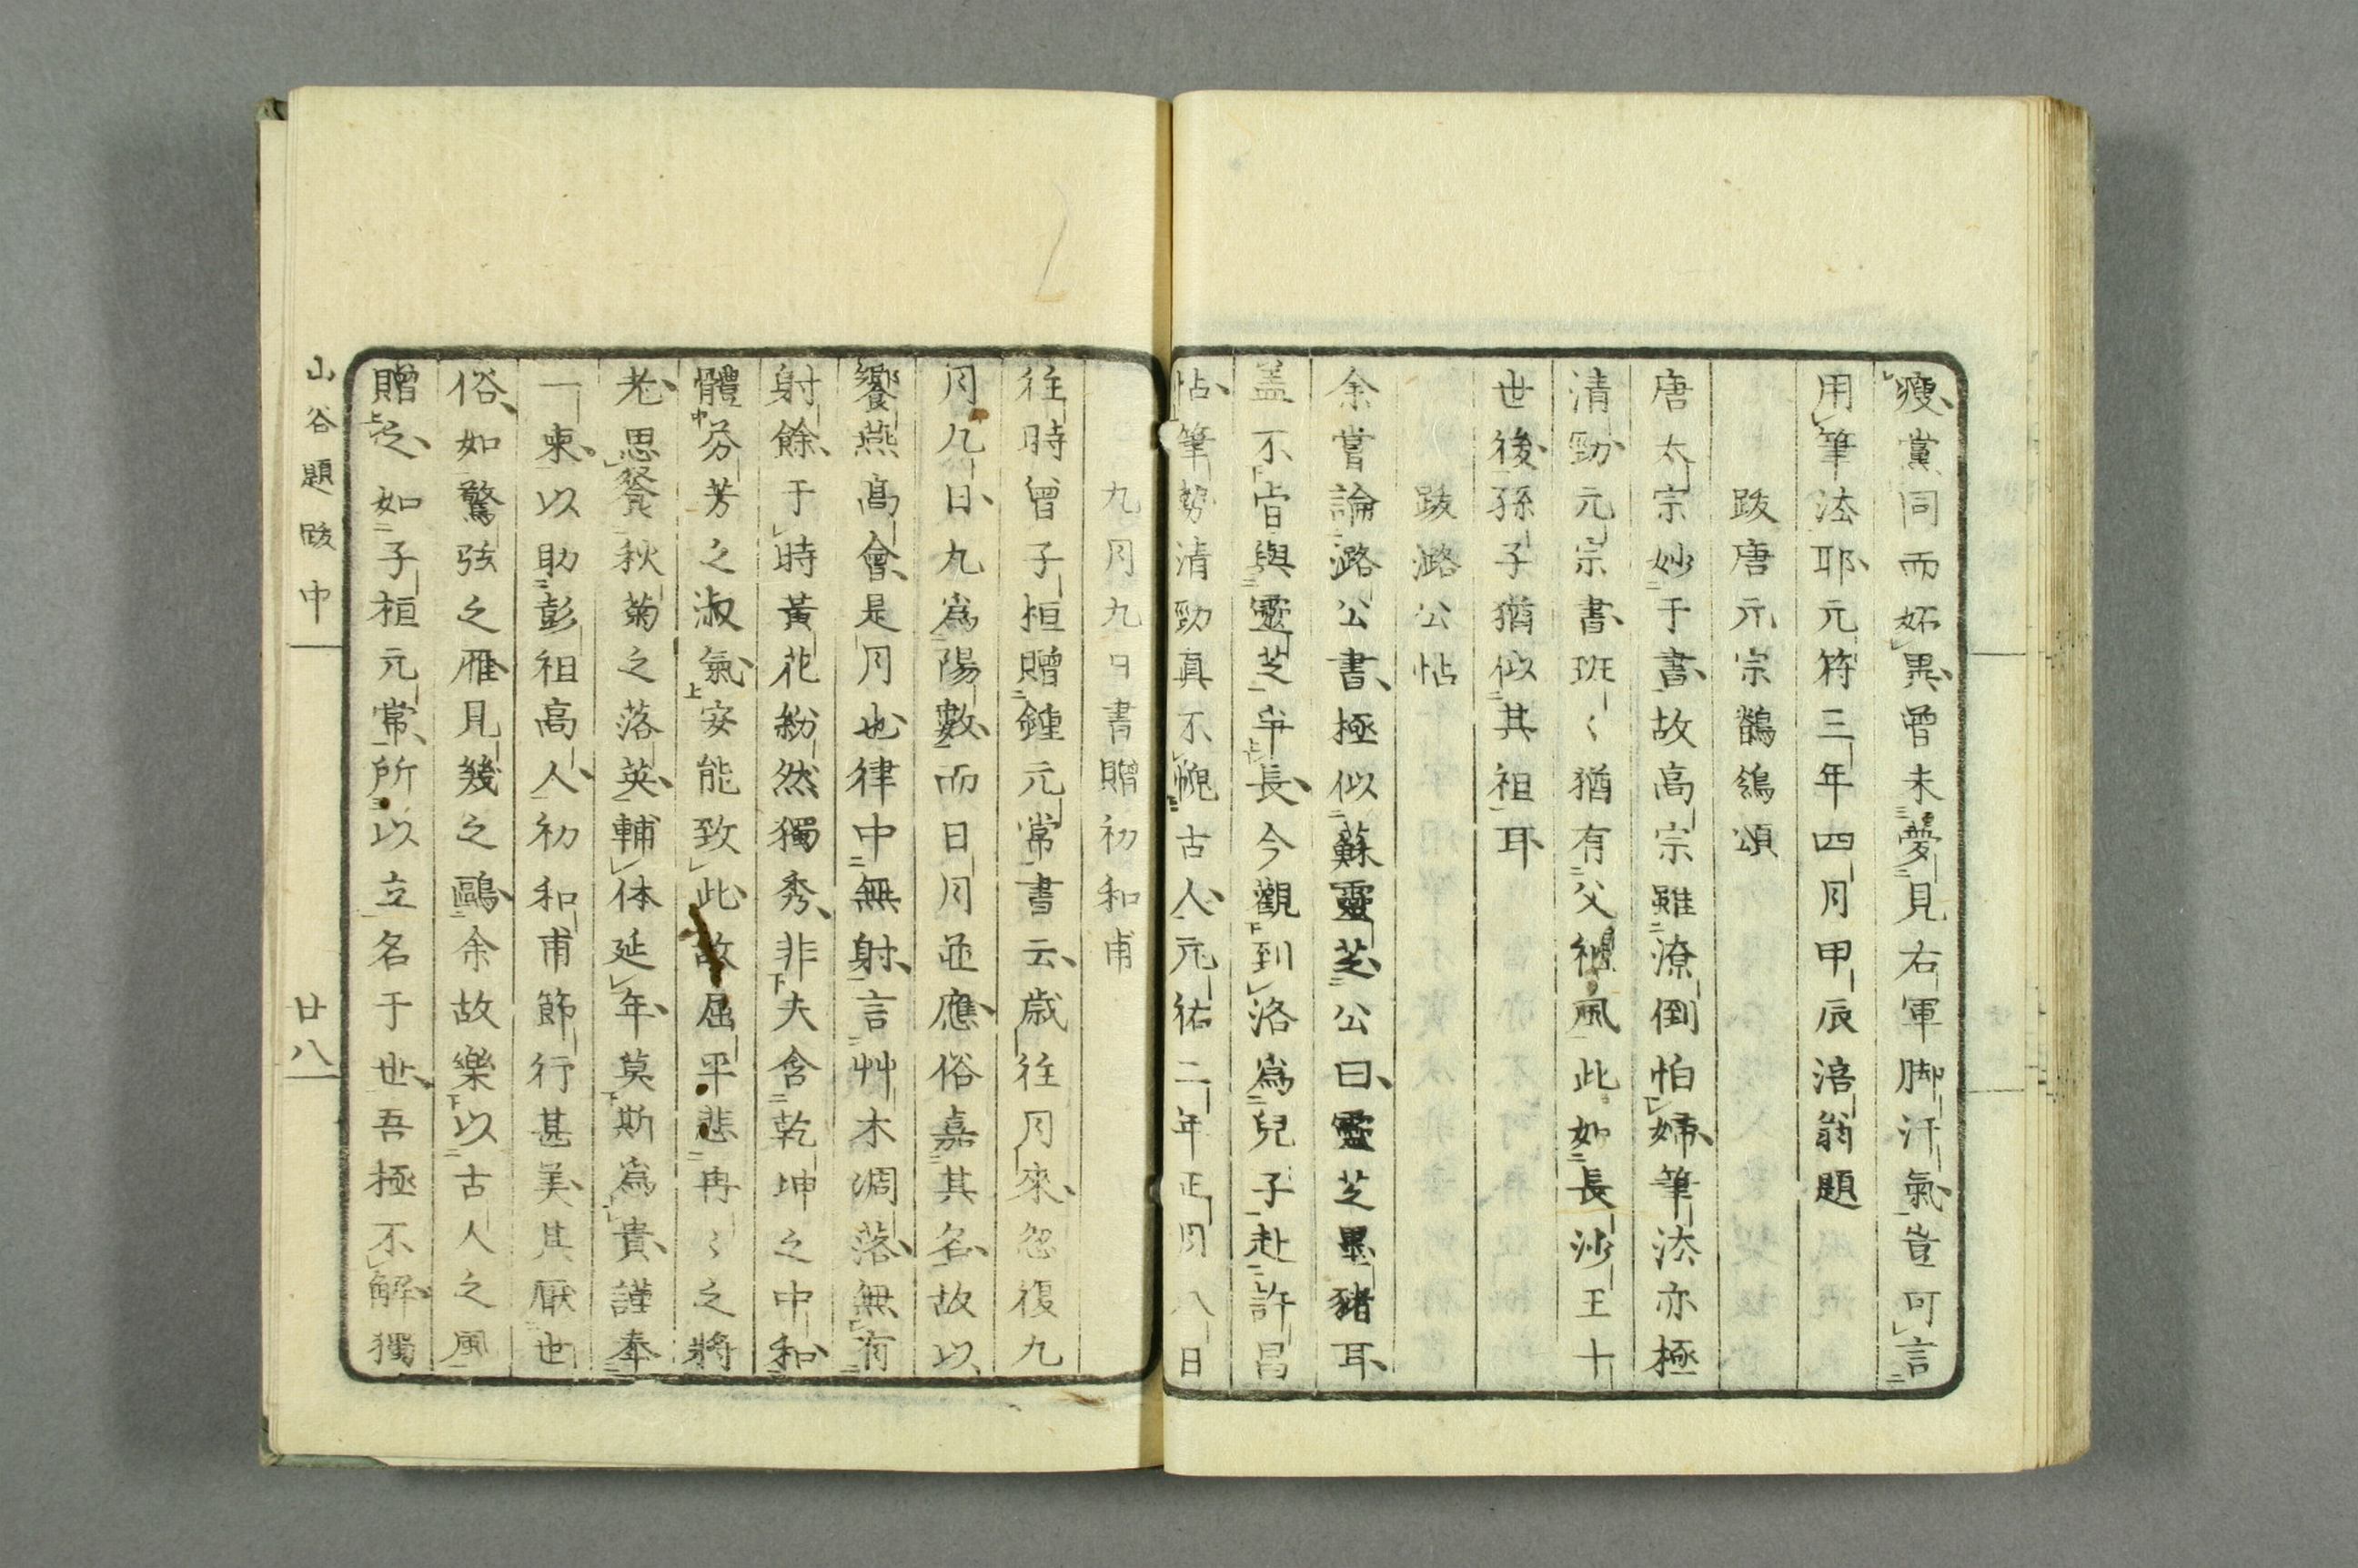 瘦黨同而妬異曽未夢見右軍脚汗氣豈可言
用筆法耶元符三年四月甲辰涪翁題
跋唐元宗鶺鴒頌
唐太宗妙于書故高宗雖潦倒怕婦筆法亦極
清勁元宗書班〻猶有父祖風此如長沙王十
世後孫子猶似其祖耳
跋潞公帖
余嘗論潞公書極似蘇靈芝公曰靈芝墨豬耳
盖不肯與靈芝争長今觀到洛為兒子赴許昌
帖筆勢清勁真不愧古人元祐二年正月八日
九月九日書贈初和甫
往時曾子桓贈鍾元常書云歳往月來忽復九
月九日九為陽數而日月並應俗嘉其名故以
饗燕高會是月也律中無射言艸木凋落無有
射餘于時黃花紛然獨秀非夫含乾坤之中和
體芬芳之淑氣安能致此故屈平悲冉〻之將
老思餐秋菊之落英輔体延年莫斯為貴謹奉
一束以助彭祖高人初和甫節行甚美其厭也
俗如驚弦之雁見幾之鷗余故樂以古人之風
贈之如子桓元常所以立名于世吾極不解獨
山谷題跋中
廿八